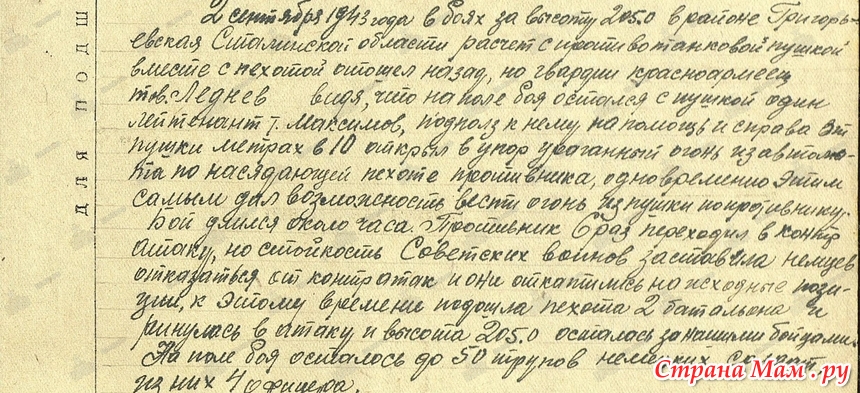 ДЛЯ ПОДШ
2 сентября 1943 года в боях за высоту 205.0 в районе Григорь-
евская Сталинской области расчет с противотанковой пушкой
вместе с пехотой отошел назад, но гвардии красноармеец
тов. Леднев видя, что на поле боя остался с пушкой один
лейтенант т. Максимов, подполз к нему на помощь и справа от
пушки метрах в 10 открыл в упор ураганный огонь из автома-
та по наседающей пехоте противника, одновременно этим
самым дал возможность вести огонь из пушки по противнику.
Бой длился около часа. Противник 6 раз переходил в контр
атаку, но стойкость Советских воинов заставила немцев
отказаться от контратак и они откатились на исходные пози-
ции, к этому времени подошла пехота 2 батальона и
ринулась в атаку и высота 205.0 осталась за нашими бойцами.
На поле боя осталось до 50 трупов немецких солдат
из них 4 офицера.
Страна Мам.ру